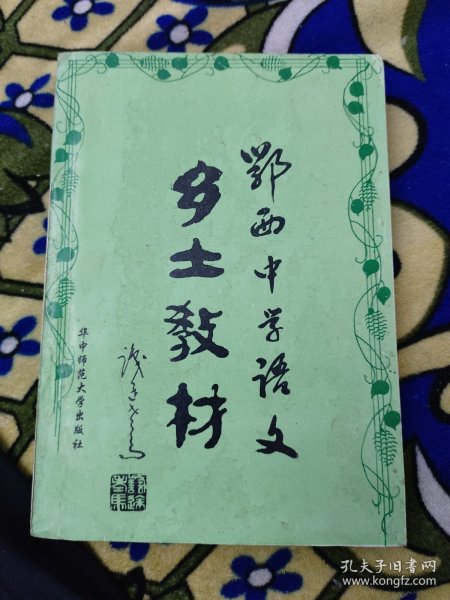 鄂西中学语文
乡土教材
识途老马
华中师范大学出版社
识途老马
孔夫子旧书网
www.kongfz.com